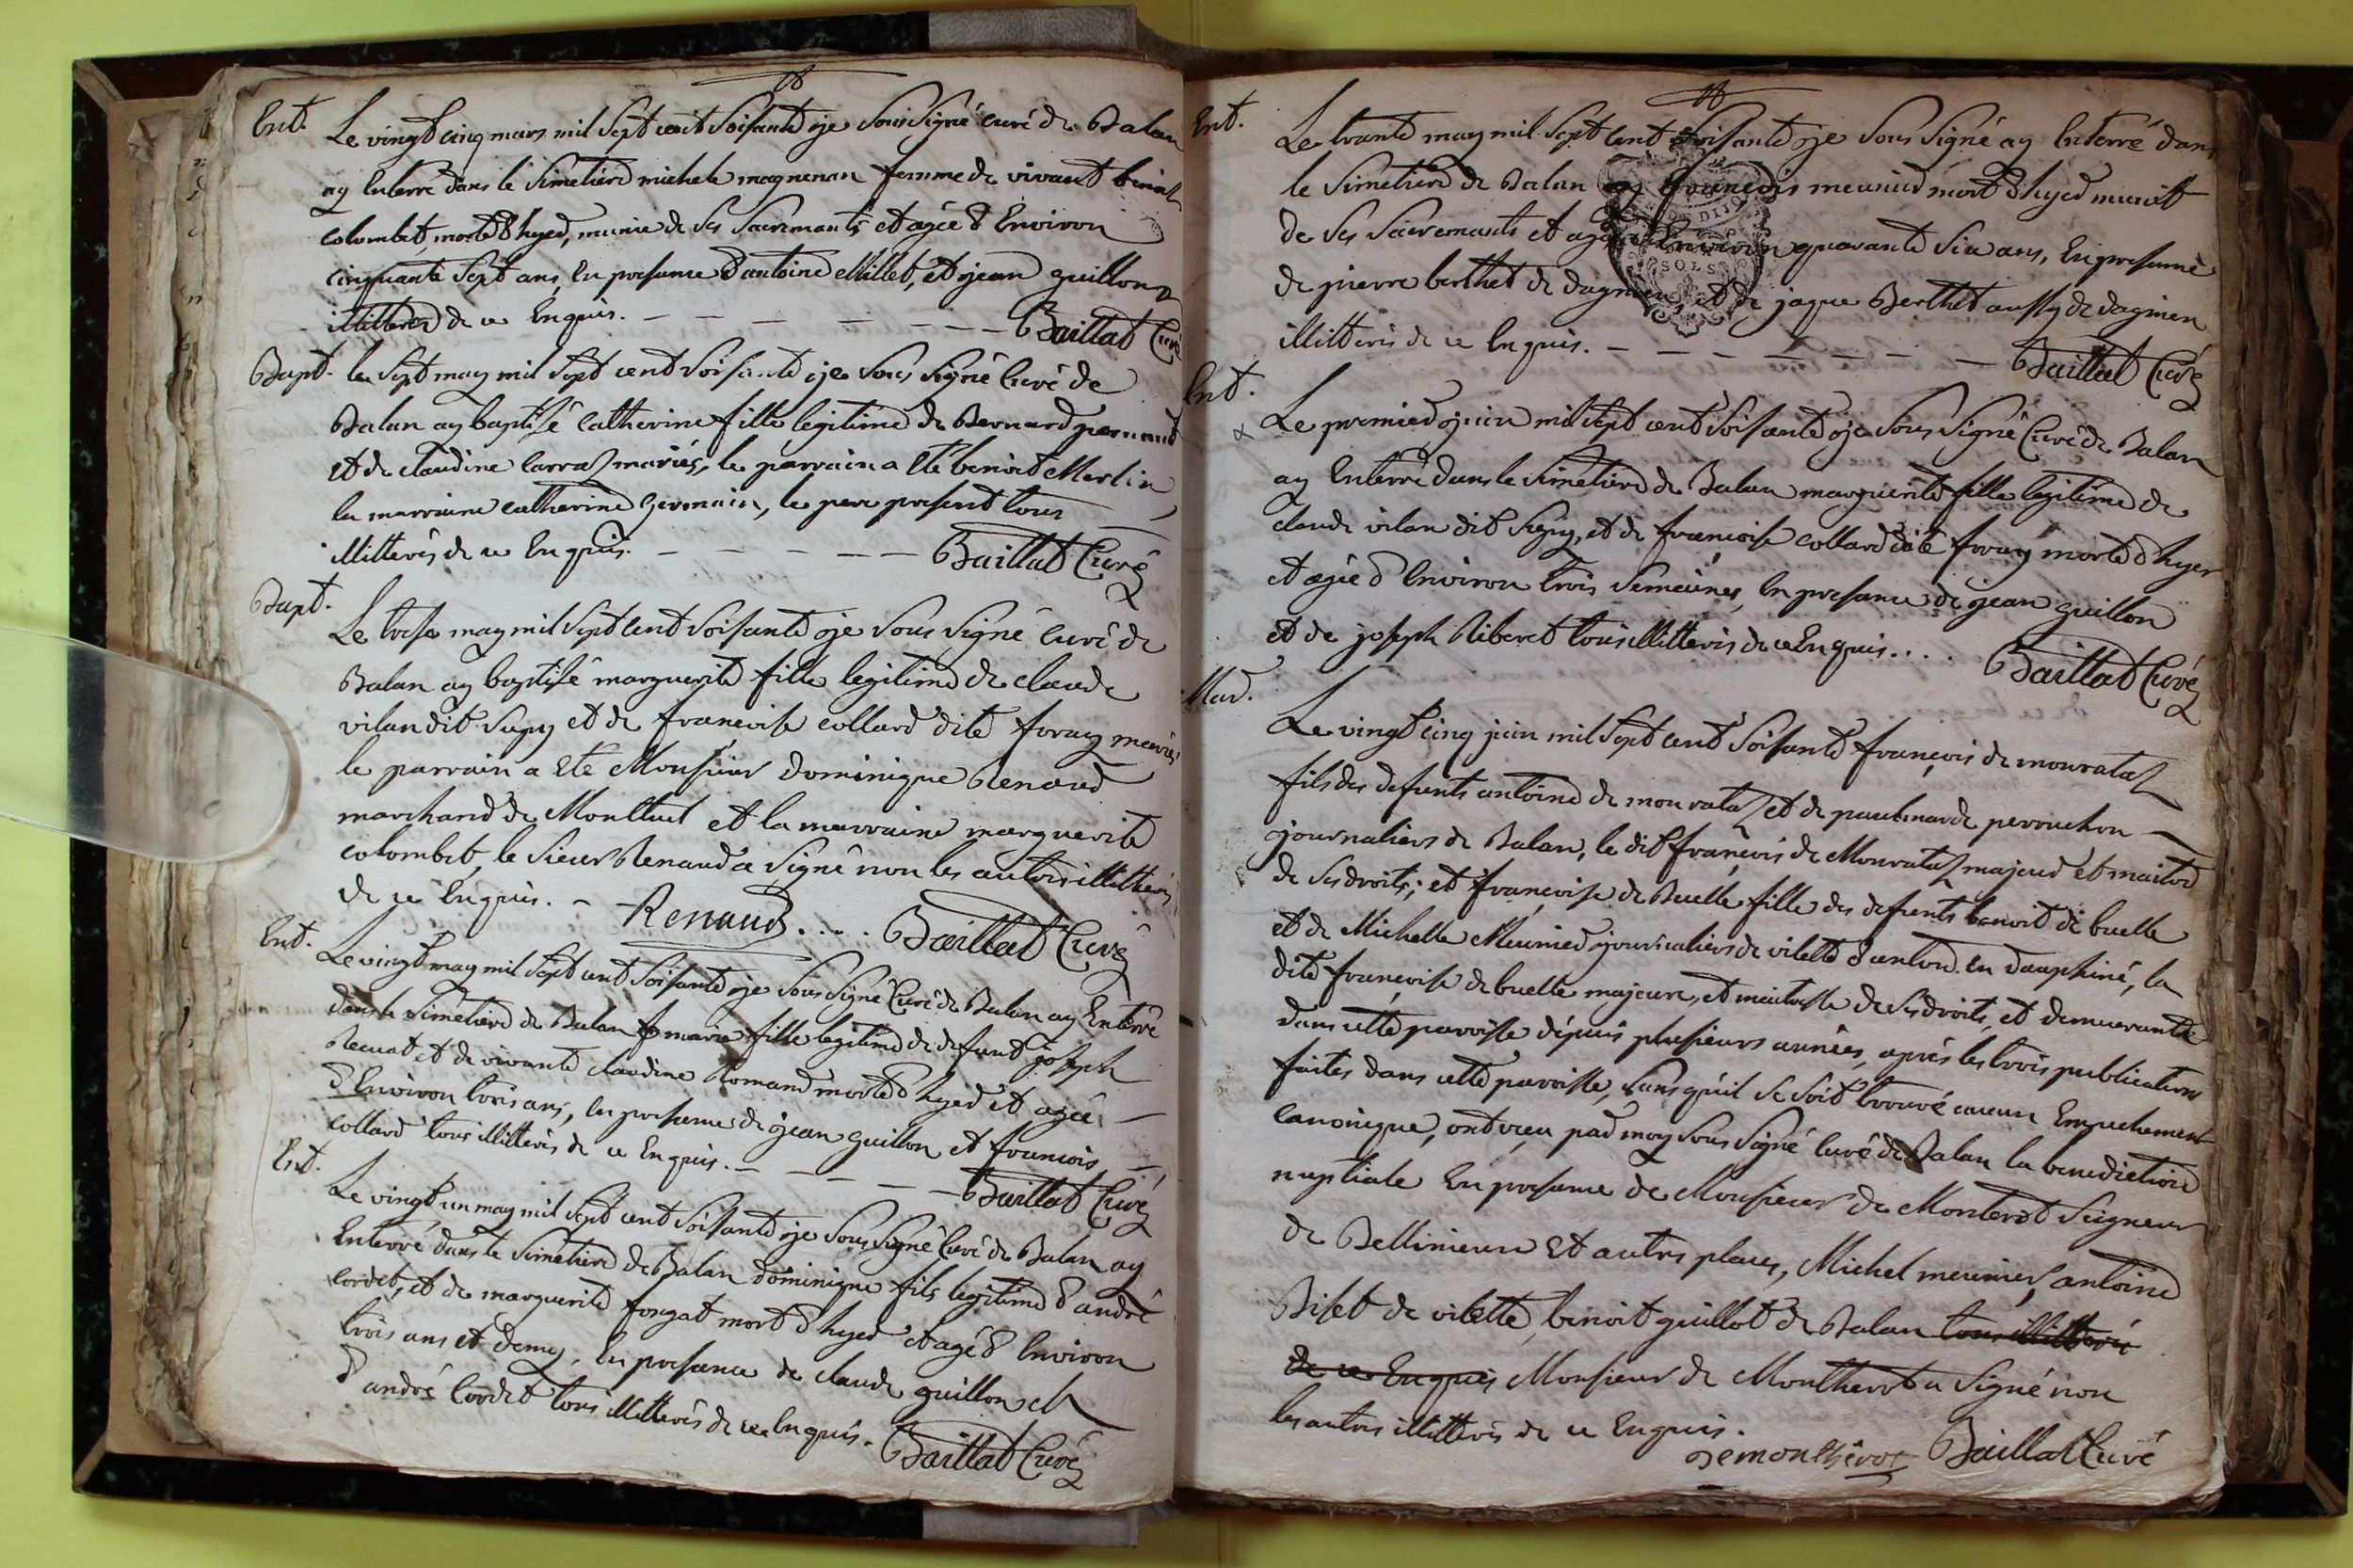 Ent.
Le vingt cinq mars mil sept cent soisante je soussigné curé de Balan
ay enterré dans le simetiere michele magnenan femme de vivant benoit
colombet, morte d'hyer, munie de ses sacremants et agée d'environ
cinquante sept ans, en presance d'antoine Millet, et jean guillon
illitterés de ce enquis. Baillat Curé
Bapt.
le sept may mil sept cent soisante je sous signé Curé de
Balan ay baptisé Catherine fille legitime de Bernard
et de claudine Carraz mariés, le parrain a eté benoit Merlin
la marraine catherine germain, le pere present tous
illitterés de ce enquis. Baillat Curé
Bapt.
Le trese may mil sept cent soisante je sous signé curé de
Balan ay baptisé marguerite fille legitime de claude
vilan dit Supy et de francoise collard dite foray mariés
le parrain a eté Monsieur dominique Renaud
marchand de Montluel et la marraine marguerite
colombet, le sieur Renaud a signé non les autres illitterés
de ce enquis. Renaud.... Baillat Curé
Ent.
Le vingt may mil sept cent soisante je sous signé Curé de Balan ay Enterré
dans le simetiere de Balan marie fille legitime de defunt joseph
et de vivante claudine Romand morte d'hyer et agée
d'environ trois ans, en presence de jean guillon et francois
collard tous illitterés de ce enquis. Baillat Curé
Ent.
Le vingt un may mil sept cent soisante je sous signé Curé de Balan ay
Enterré dans le simetiere de Balan dominique fils legitime d'andré
Cordet, et de marguerite forgat mort d'hyer et agé d'environ
trois ans et demy, en presance de claude guillon et
d'andré Cordet tous illitterés de ce enquis. Baillat Curé
Ent.
Le trante may mil sept cent soisante je sous signé ay enterré dans
le simetiere de Balan françois meunier mort d'hyer munit
de ses sacremants et agé d'environ quarante six ans, en presance
de pierre berthet de dagnieu, et de jaque Berthet aussy de dagnieu
illitterés de ce enquis. Baillat Curé
Ent.
Le premier juin mil sept cent soisante je sous signé Curé de Balan
ay Enterré dans le simetiere de Balan marguerite fille legitime de
claude vilan dit Supy, et de francoise collard dite foray morte d'hyer
et agée d'environ trois semaines, en presance de jean guillon
et de joseph Riberet tous illitterés de ce enquis.... Baillat Curé
Mar.
Le vingt cinq juin mil sept cent soisante françois de mourataz
fils des defunts antoine de mourataz et de pauhnarde perouchon
journaliers de Balan, le dit françois de Mourataz majeur et maitre
de ses droits; et françoise de Buelle fille des defunts benoit de buelle
et de Michelle Meunier journaliers de vilette d'anton en dauphiné, la
dite françoise de buelle majeure, et maitresse de ses droits, et demeurante
dans cette paroisse depuis plusieurs années, après les trois publications
faites dans cette paroisse, sans qu'il se soit trouvé aucun Empechement
canonique, ont reçu par moy sous signé Curé de Balan la benediction
nuptiale En presance de Monsieur de Monterot Seigneur
de Bellinieux et autres places, Michel meunier, antoine
Biset de vilette, benoit guillot de Balan tous illitterés
de ce Enquis Monsieur de Montherot a signé non
les autres illitterés de ce Enquis.
Demontherot Baillat Curé
DIJON
SOLS